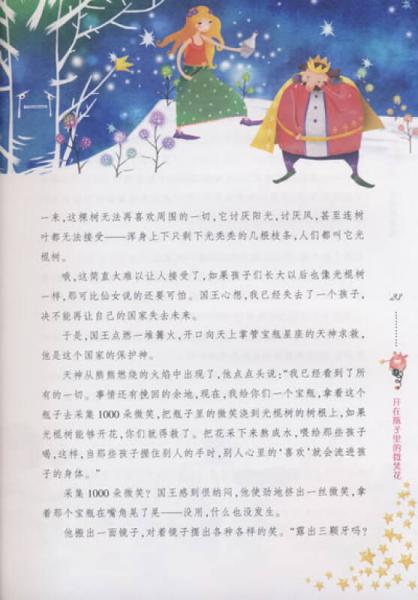 一来,这棵树无法再喜欢周围的一切,它讨厌阳光,讨厌风,甚至连树
叶都无法接受——浑身上下只剩下光秃秃的几根枝条,人们都叫它光
棍树。
哦,这简直太难以让人接受了,如果孩子们长大以后也像光棍树
一样,那可比仙女说的还要可怕。国王心想,我已经失去了一个孩子,
决不能再让自己的国家失去未来。
于是,国王点燃一堆篝火,开口向天上掌管宝瓶星座的天神求救,
他是这个国家的保护神。
天神从熊熊燃烧的火焰中出现了,他点点头说:“我已经看到了所
有的一切。事情还有挽回的余地,现在,我给你们一个宝瓶,拿着这个
瓶子去采集1000朵微笑,把瓶子里的微笑浇到光棍树的树根上,如果
光棍树能够开花,你们就得救了。把花采下来熬成水,喂给那些孩子
喝,这样,当那些孩子握住别人的手时,别人心里的‘喜欢’就会流进孩
子的身体。”
采集1000朵微笑?国王感到很纳闷,他使劲地挤出一丝微笑,拿
着那个宝瓶在嘴角晃了晃——没用,什么也没发生。
他搬出一面镜子,对着镜子摆出各种各样的笑。“露出三颗牙吗?
开在瓶子里的微笑花